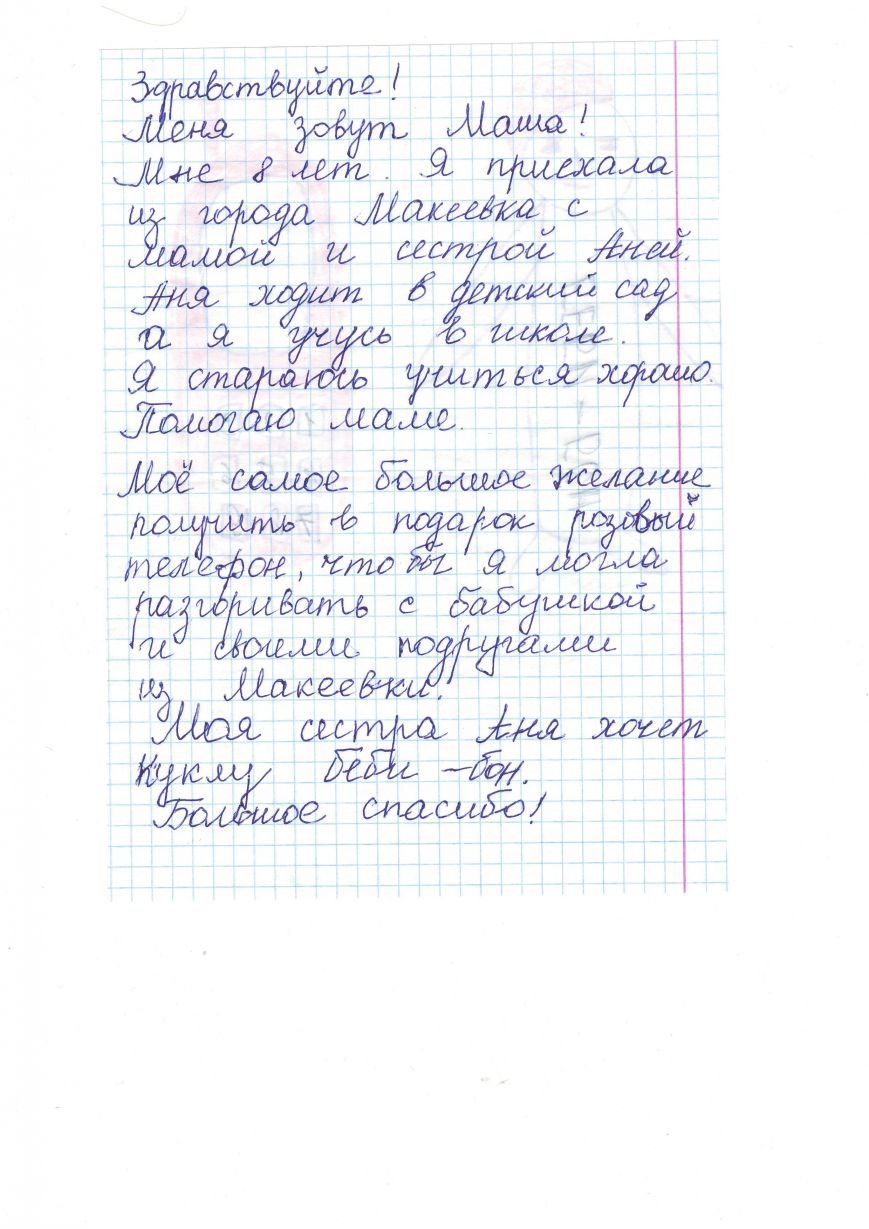 Здравствуйте!
Меня зовут Маша!
Мне 8 лет. Я приехала
из города Макеевка с
мамой и сестрой Аней.
Аня ходит в детский сад
а я учусь в школе.
Я стараюсь учиться хорошо.
Помогаю маме.
Моё самое большое желание
получить в подарок розовый
телефон, что бы я могла
разгоривать с бабушкой
и своими подругами
из Макеевки.
Моя сестра Аня хочет
куклу беби-бон.
Большое спасибо!